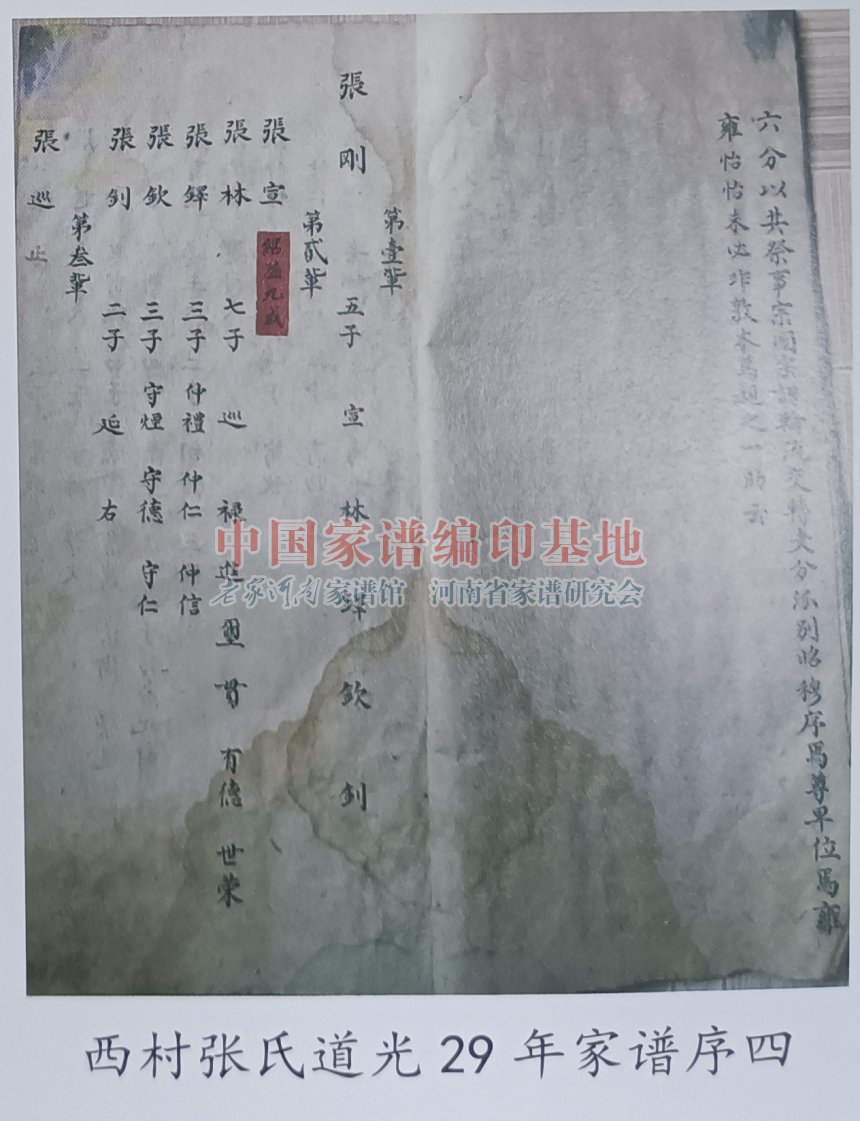 六分以共祭事宗圖宗譜輪流交轉支分派別昭穆序焉尊卑位焉雍
雍怡怡未必非敦本篤親之一助云
第壹軰
張剛 五子 宣 林 鐸 欽 釗
第貳軰
張宣
張林 七子 巡 禄 進 璽 貴 有德 世荣
張鐸 三子 仲禮 仲仁 仲信
張欽 三子 守煙 守德 守仁
張釗 二子 延 右
第叁軰
張巡 止
中国家谱编印基地
老家河南家谱馆 河南省家谱研究会
西村张氏道光 29 年家谱序四